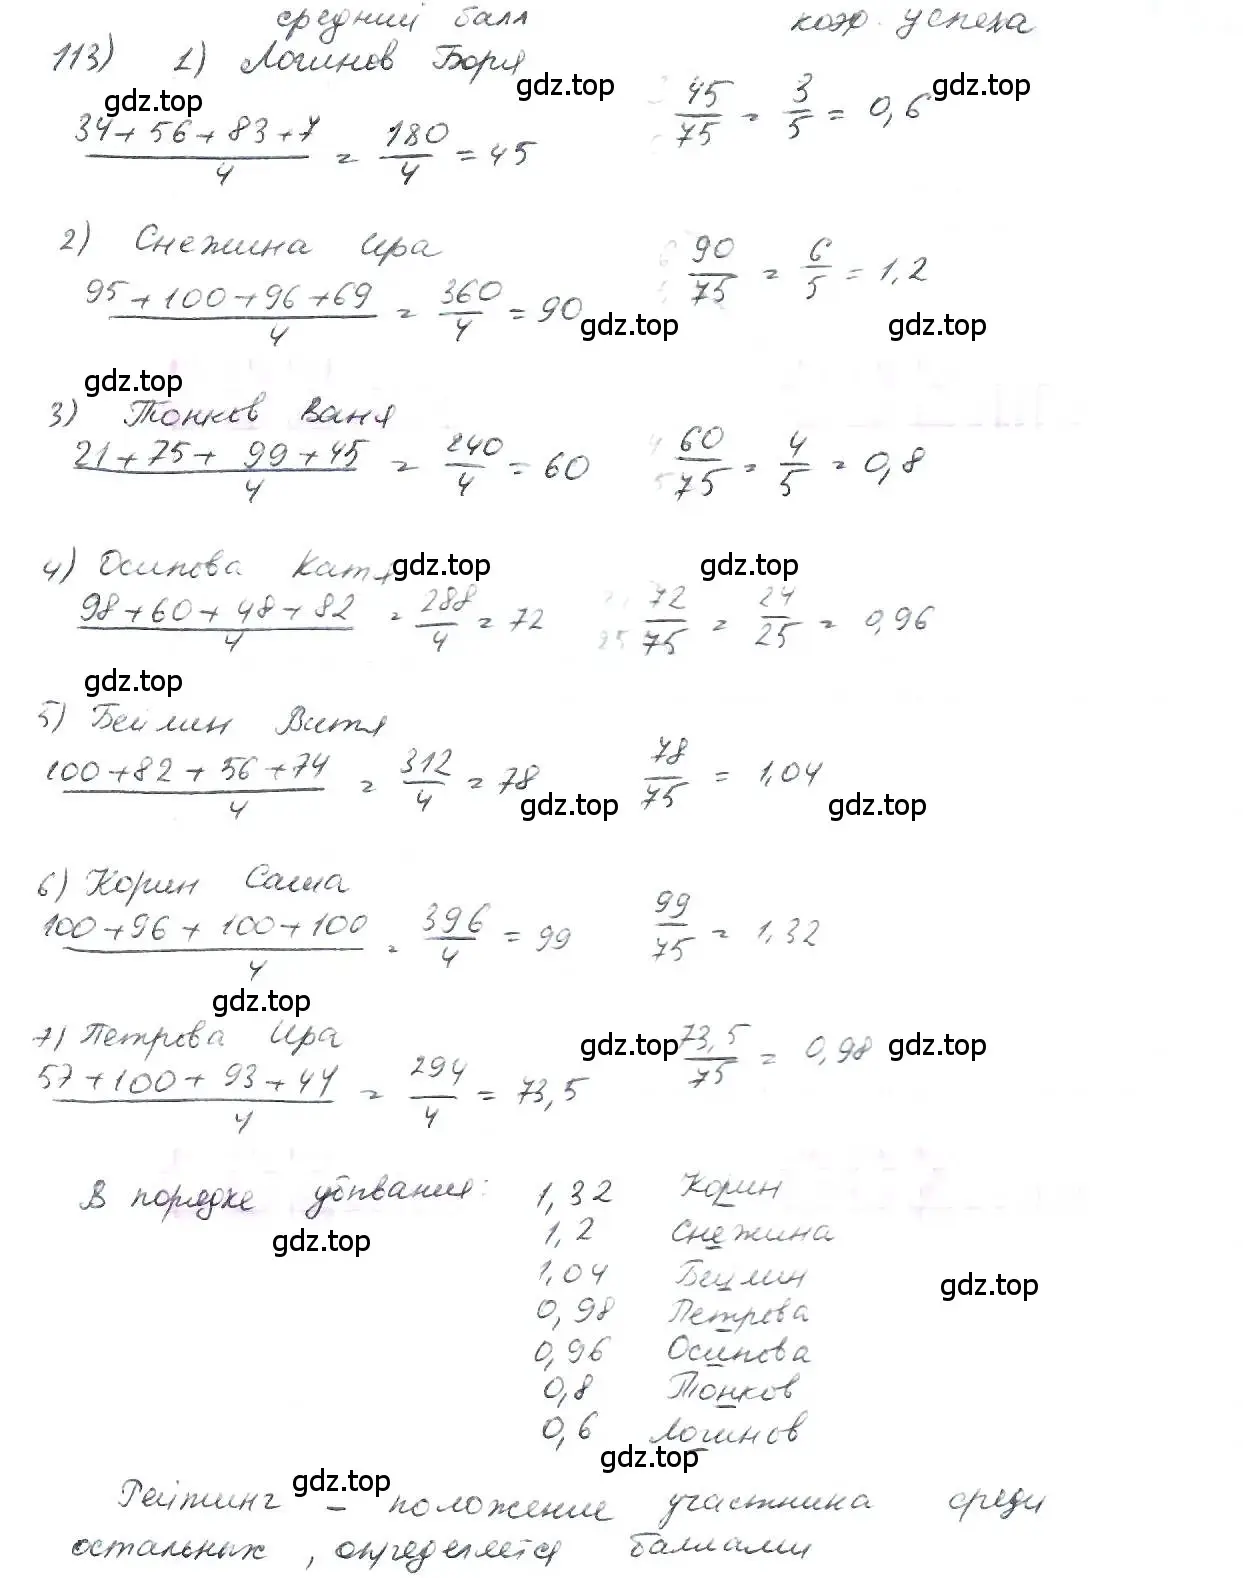 средний балл коэф. успеха
113) 1) Логинов Боря
gdz.top gdz.top gdz.top
(34+56+83+7)/4 = 180/4 = 45 45/75 = 3/5 = 0,6
2) Снежина Ира
(95+100+96+69)/4 = 360/4 = 90 90/75 = 6/5 = 1,2
gdz.top gdz.top
gdz.top
3) Тонков Ваня
(21+75+99+45)/4 = 240/4 = 60 60/75 = 4/5 = 0,8
4) Осипова Катя gdz.top gdz.top
(98+60+48+82)/4 = 288/4 = 72 72/75 = 24/25 = 0,96
gdz.top
5) Беймин Витя
(100+82+56+74)/4 = 312/4 = 78 78/75 = 1,04
gdz.top gdz.top
6) Корин Саша
(100+96+100+100)/4 = 396/4 = 99 99/75 = 1,32
gdz.top
7) Петрова Ира
gdz.top gdz.top
(57+100+93+44)/4 = 294/4 = 73,5 73,5/75 = 0,98
В порядке убывания: 1,32 Корин
gdz.top 1,2 Снежина
1,04 Беймин gdz.top
0,98 Петрова
0,96 Осипова
0,8 Тонков
0,6 Логинов
gdz.top
gdz.top
Рейтинг – положение участника среди
остальных, определяется баллами